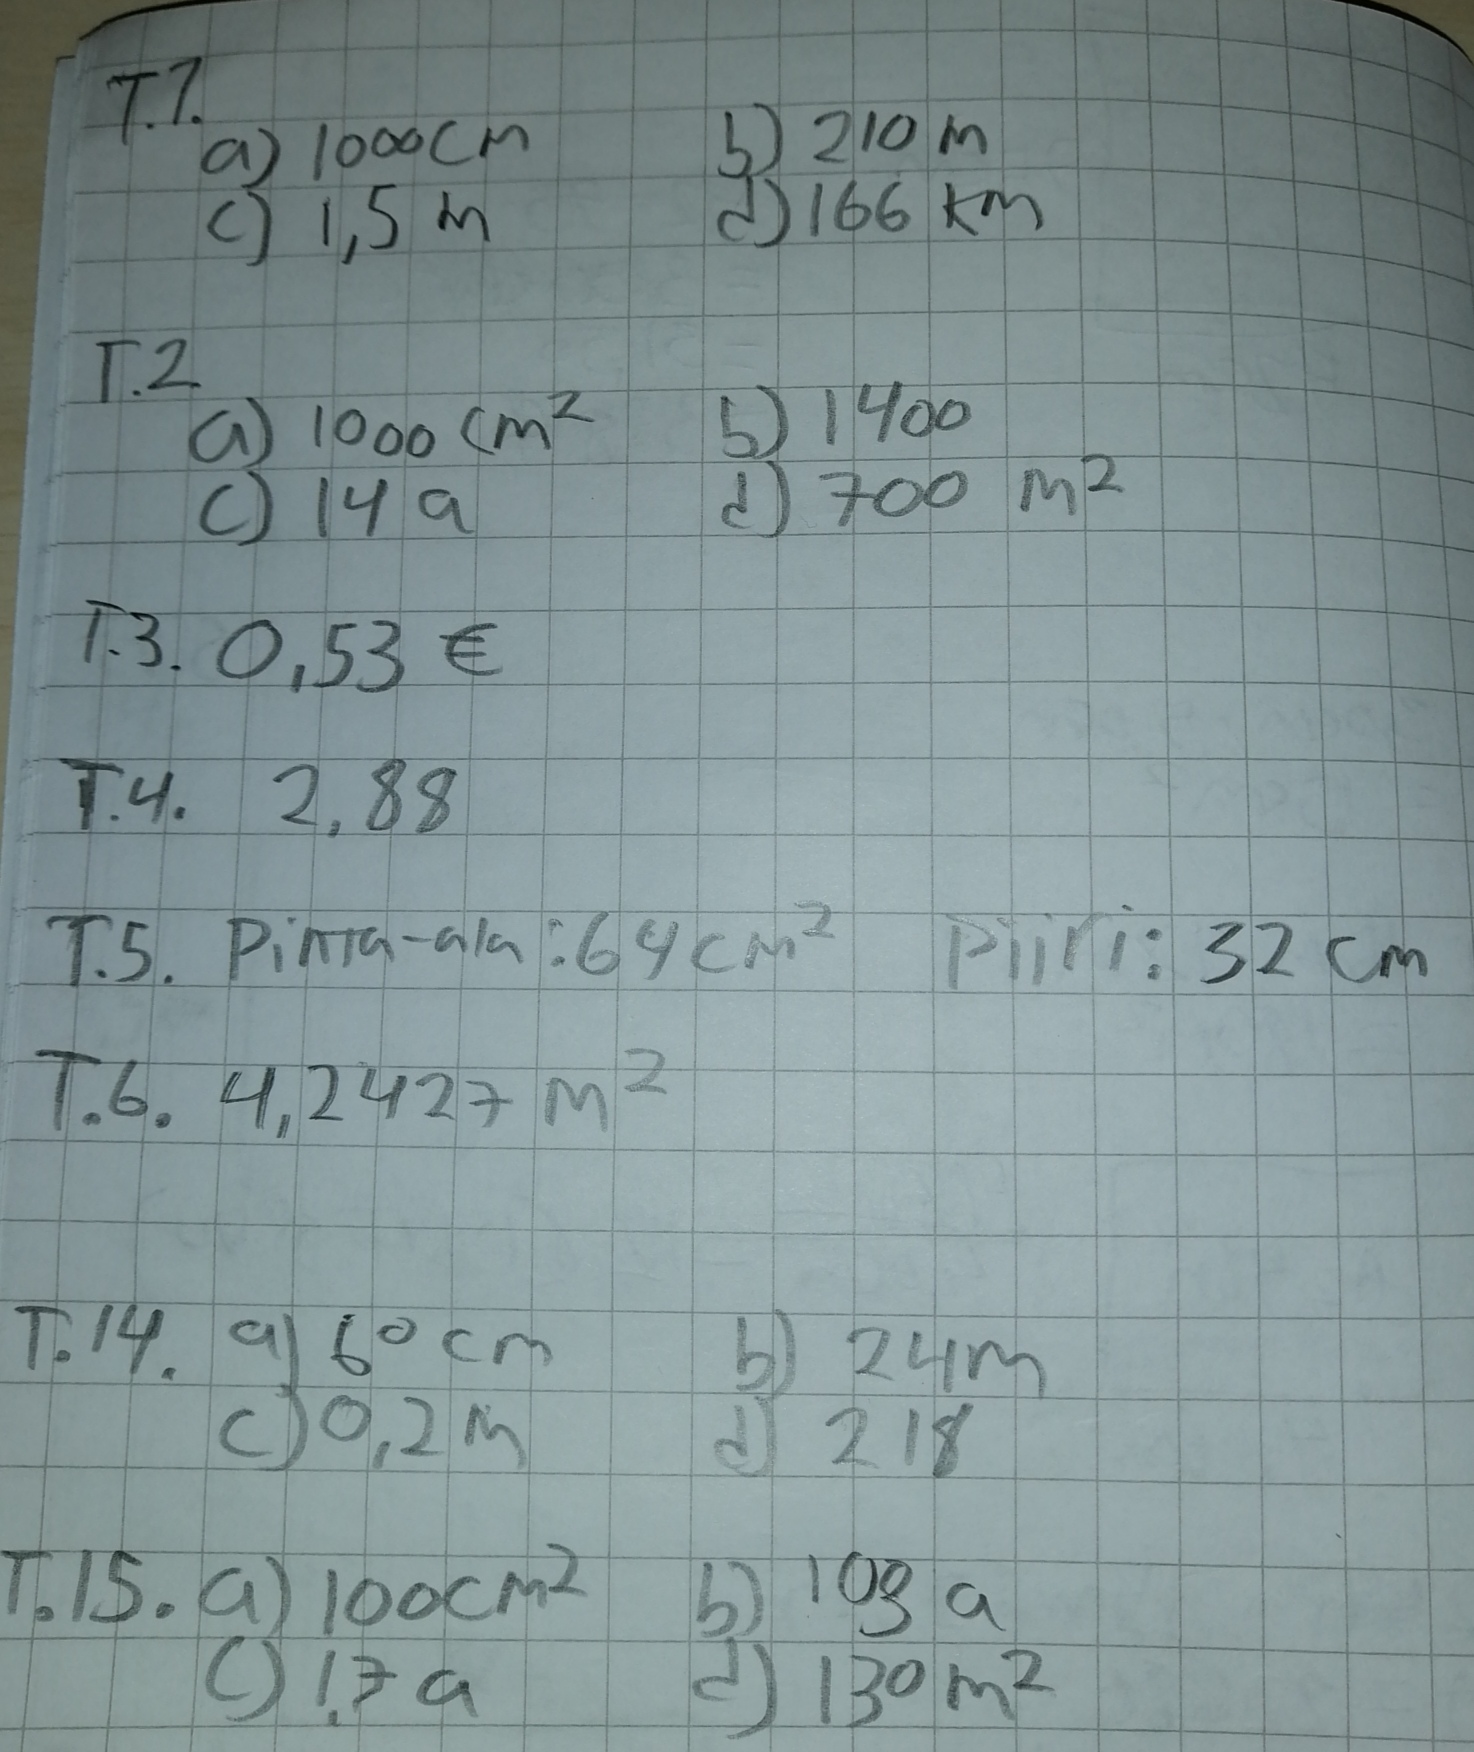 T.1.
a) 1000cm b) 210 m
c) 1,5 m d) 166 km
T.2
a) 1000 cm² b) 1400
c) 14 a d) 700 m²
T.3. 0,53 €
T.4. 2,88
T.5. Pinta-ala: 64 cm² Piiri: 32 cm
T.6. 4,2427 m²
T.14. a) 60 cm b) 24m
c) 0,2 m d) 218
T.15. a) 100cm² b) a
c) 1,7 a d) 130 m²